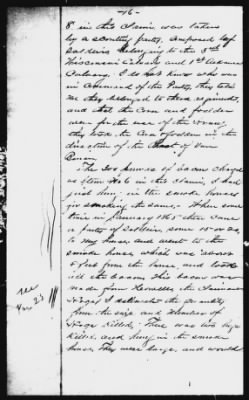 -16-
8" in this claim, was taken
by a scouting party, composed of
soldiers belonging to the 3rd
Wisconsin Cavalry and 1st Arkansas
Cavalry, I do not know who was
in command of the Party, they told
me they belonged to these regiments,
and that the corn and fodder
were for the use of the Army,
they took the corn & fodder in the
direction of the of Van
Buren.
The 300 pounds of bacon charged
as Item No 6 in this claim, I had
just hung in the smoke house
for smoking the same. When some
time in January 1865 there came
a party of soldiers, some 15 or 20
to my house and went to the
smoke house, which was about
feet from the house, and took
all the bacon. This bacon was
made from
I estimate the quantity
from the size and number of
Hogs killed, There was two hogs
killed, and hung in the smoke
house, They were large, and would
see
No 23